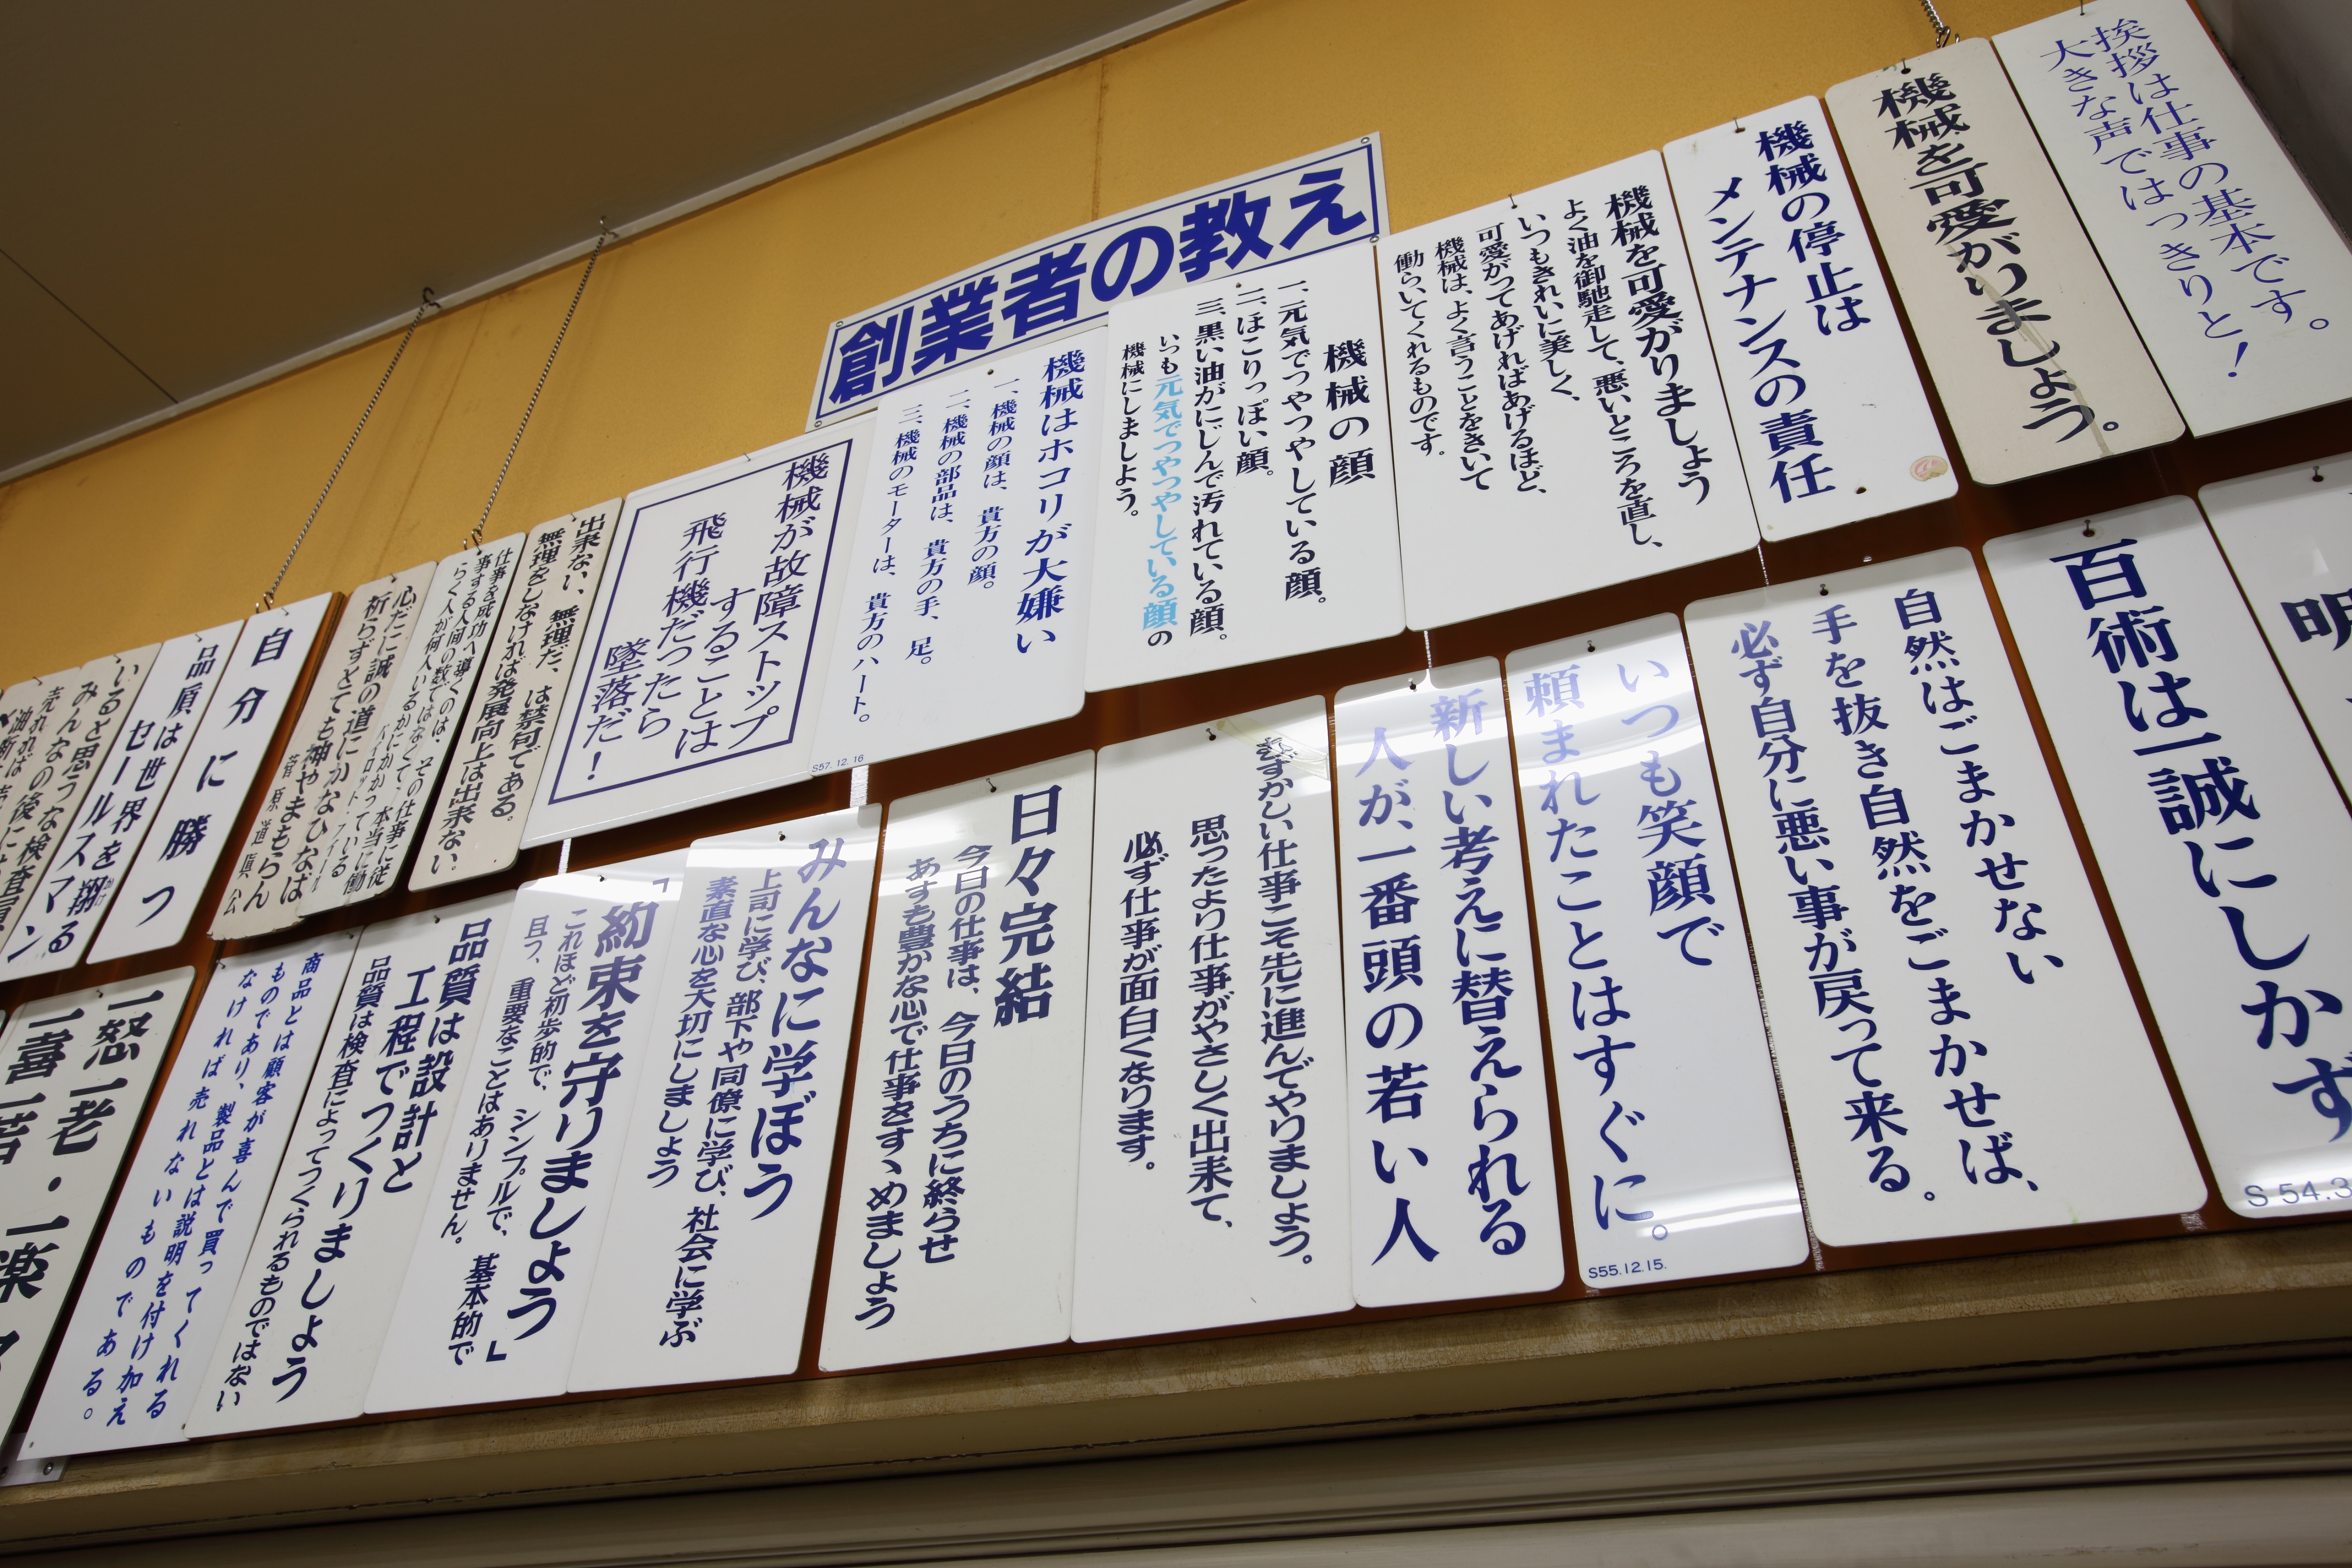 創業者の教え
挨拶は仕事の基本です。
大きな声ではっきりと!
機械を可愛がりましょう。
機械の停止は
メンテナンスの責任
機械を可愛がりましょう
よく油を御馳走して、悪いところを直し、
いつもきれいに美しく、
可愛がってあげればあげるほど、
機械は、よく言うことをきいて
働らいてくれるものです。
機械の顔
一、元気でつやつやしている顔。
二、ほこりっぽい顔。
三、黒い油がにじんで汚れている顔。
いつも元気でつやつやしている顔の
機械にしましよう。
機械はホコリが大嫌い
一、機械の顔は、貴方の顔。
二、機械の部品は、貴方の手、足。
三、機械のモーターは、貴方のハート。
S57.12.16
機械が故障ストップ
することは
飛行機だったら
墜落だ!
出来ない、無理だ、は禁句である。
無理をしなければ発展向上は出来ない。
仕事を成功へ導くのは、その仕事に従
事する人間の数ではなくて、本当に働
らく人が何人いるかにかかっている
心だに誠の道にかなひなば
祈らずとても神やまもらん
菅原道真公
自分に勝つ
品質は世界を翔る
セールスマン
いると思うな検査員
みんなの後に
明
S 54.3
百術は一誠にしかず
自然はごまかせない
手を抜き自然をごまかせば、
必ず自分に悪い事が戻って来る。
いつも笑顔で
頼まれたことはすぐに。
S55.12.15.
新しい考えに替えられる
人が、一番頭の若い人
むずかしい仕事こそ先に進んでやりましょう。
思ったより仕事がやさしく出来て、
必ず仕事が面白くなります。
日々完結
今日の仕事は、今日のうちに終らせ
あすも豊かな心で仕事をすゝめましょう
みんなに学ぼう
上司に学び、部下や同僚に学び、社会に学ぶ
素直な心を大切にしましょう
「約束を守りましょう」
これほど初歩的で、シンプルで、基本的で
且つ、重要なことはありません。
品質は設計と
工程でつくりましょう
品質は検査によってつくられるものではない
商品とは顧客が喜んで買ってくれる
ものであり、製品とは説明を付け加え
なければ売れないものである。
一怒一老・一楽
一喜一若